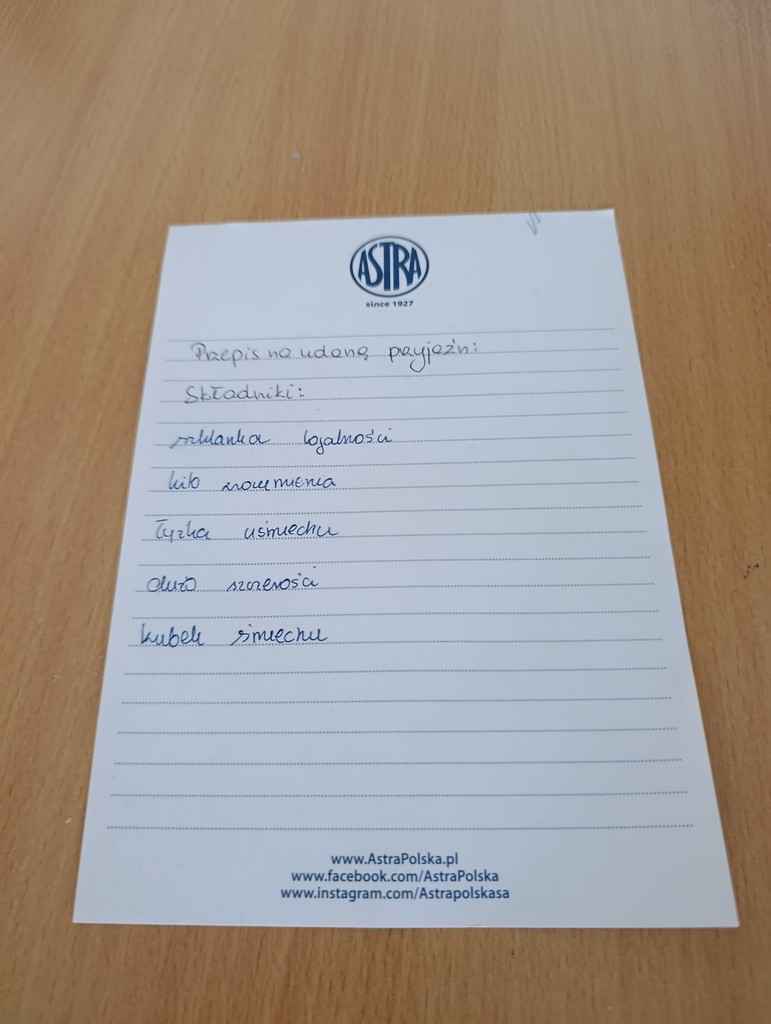 ASTRA
since 1927
Przepis na udaną przyjaźń:
Składniki:
szklanka lojalności
kilo zrozumienia
łyżka uśmiechu
dużo szczerości
kubek śmiechu
www.AstraPolska.pl
www.facebook.com/AstraPolska
www.instagram.com/Astrapolskasa